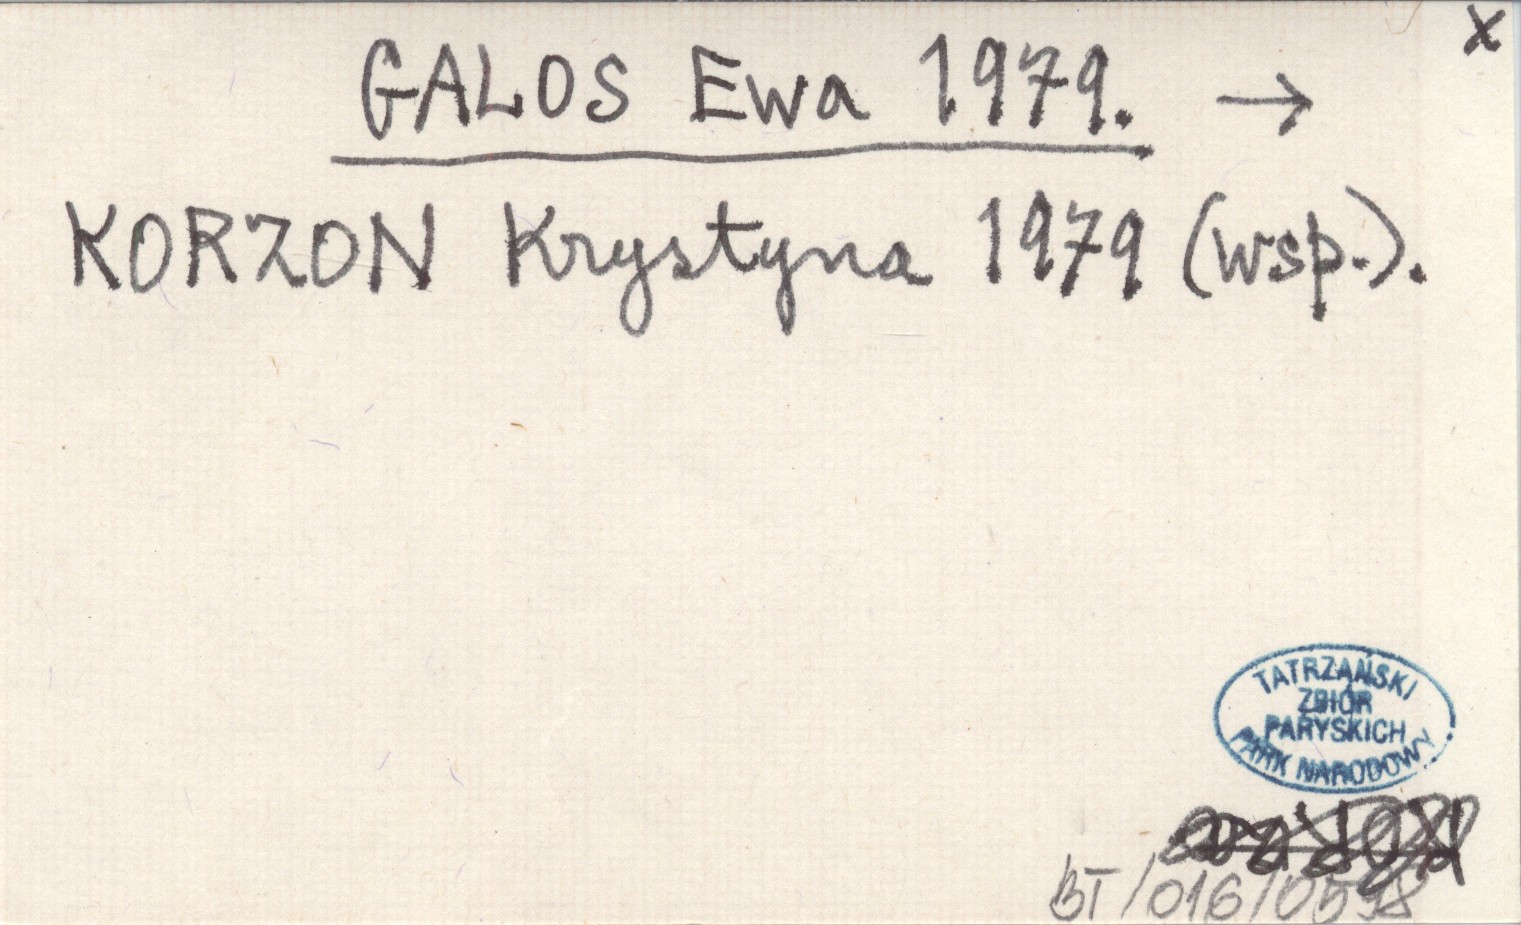 x
GALOS Ewa 1979. →
KORZON Krystyna 1979 (wsp.).
TATRZAŃSKI
ZBIÓR
PARYSKICH
PARK NARODOWY
BT/016/0598